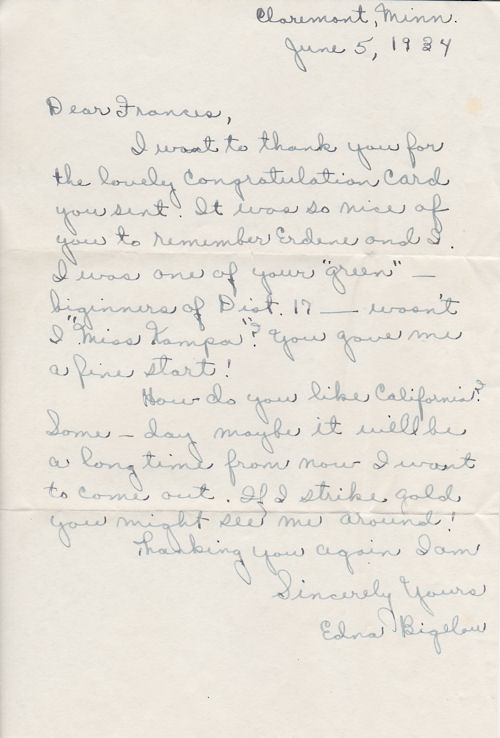 Claremont, Minn.
June 5, 1934
Dear Frances,
I want to thank you for
the lovely Congratulation Card
you sent. It was so nice of
you to remember Erdene and I.
I was one of your "green" —
biginners of Dist. 17 — wasn't
I "Miss Kampa"? You gave me
a fine start!
How do you like California?
Some - day maybe it will be
a long time from now I want
to come out. If I strike gold
you might see me around!
Thanking you again I am
Sincerely Yours
Edna Bigelow